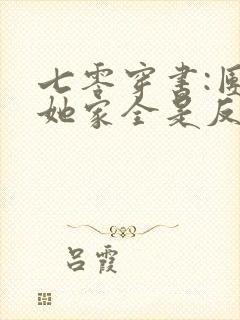 七零穿书:
她家全是反
吕霞